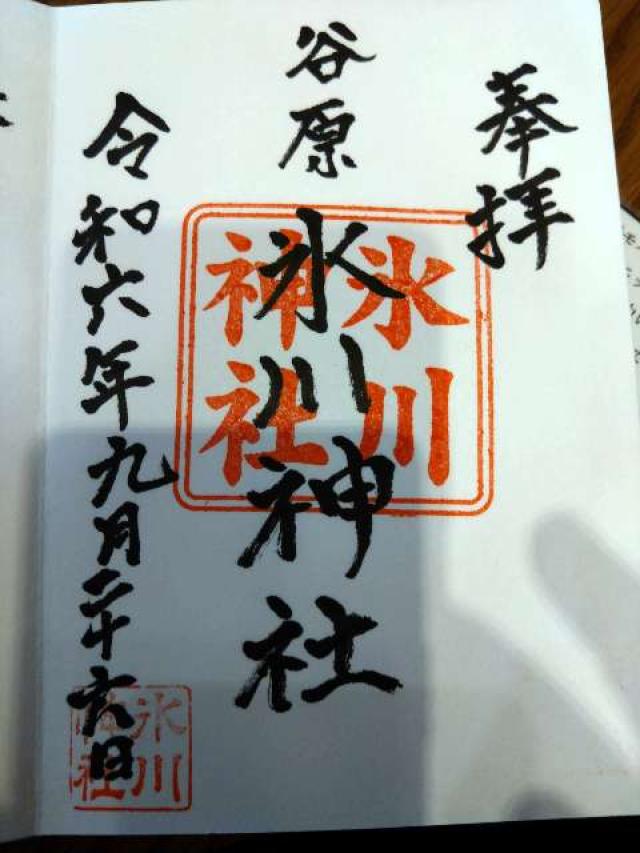 奉拝
谷原
氷川神社
氷川
神社
令和六年九月二十六日
氷川
神社